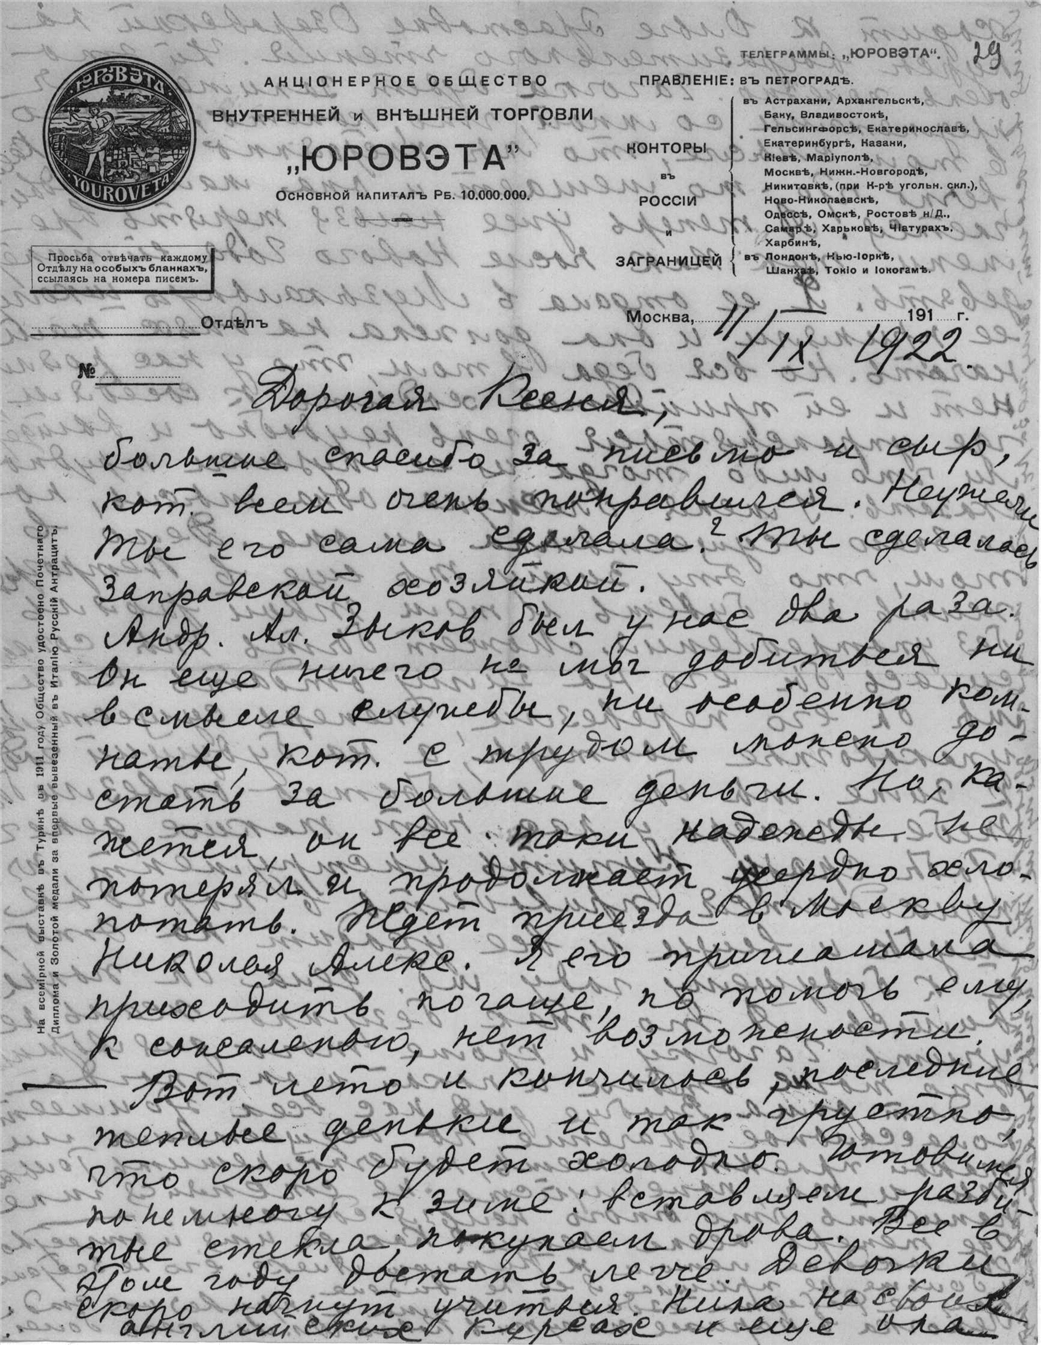 ТЕЛЕГРАММЫ: „ЮРОВЭТА“.
29
ЮРОВЭТА
YOUROVETA
АКЦІОНЕРНОЕ ОБЩЕСТВО
ВНУТРЕННЕЙ и ВНѢШНЕЙ ТОРГОВЛИ
„ЮРОВЭТА“
Основной капиталъ Рб. 10.000.000.
ПРАВЛЕНІЕ: въ ПЕТРОГРАДѢ.
КОНТОРЫ
въ
РОССІИ
и
ЗАГРАНИЦЕЙ
въ Астрахани, Архангельскѣ,
Баку, Владивостокѣ,
Гельсингфорсѣ, Екатеринославѣ,
Екатеринбургѣ, Казани,
Кіевѣ, Маріуполѣ,
Москвѣ, Нижн.-Новгородѣ,
Никитовкѣ, (при К-рѣ угольн. скл.),
Ново-Николаевскѣ,
Одессѣ, Омскѣ, Ростовѣ н/Д.,
Самарѣ, Харьковѣ, Чіатурахъ,
Харбинѣ,
въ Лондонѣ, Нью-Іоркѣ,
Шанхаѣ, Токіо и Іокогамѣ.
Просьба отвѣчать каждому
Отдѣлу на особыхъ бланкахъ,
ссылаясь на номера писемъ.
Отдѣлъ
Москва, 11/IX 191 г.
1922.
№
На всемірной выставкѣ въ Туринѣ въ 1911 году Общество удостоено Почетнаго
Диплома и Золотой медали за впервые вывезенный въ Италію Русскій Антрацитъ.
Дорогая Ксения,
большие спасибо за письмо и сыр,
кот. всем очень понравился. Неужели
ты его сама сделала? Ты сделалась
заправской хозяйкой.
Андр. Ал. Зыков был у нас два раза.
Он еще ничего не мог добиться ни
в смысле службы, ни особенно ком-
наты, кот. с трудом можно до-
стать за большие деньги. Но, ка-
жется, он все-таки надежды не
потерял и продолжает усердно хло-
потать. Ждет приезда в Москву
Николая Алекс. Я его приглашала
приходить почаще, но помочь ему,
к сожалению, нет возможности.
— Вот лето и кончилось, последние
теплые деньки и так грустно,
что скоро будет холодно. Готовимся
понемногу к зиме: вставляем разби-
тые стекла, покупаем дрова. Все в
этом году достать легче. Девочки
скоро начнут учиться. Нина на своих
английских курсах и еще она